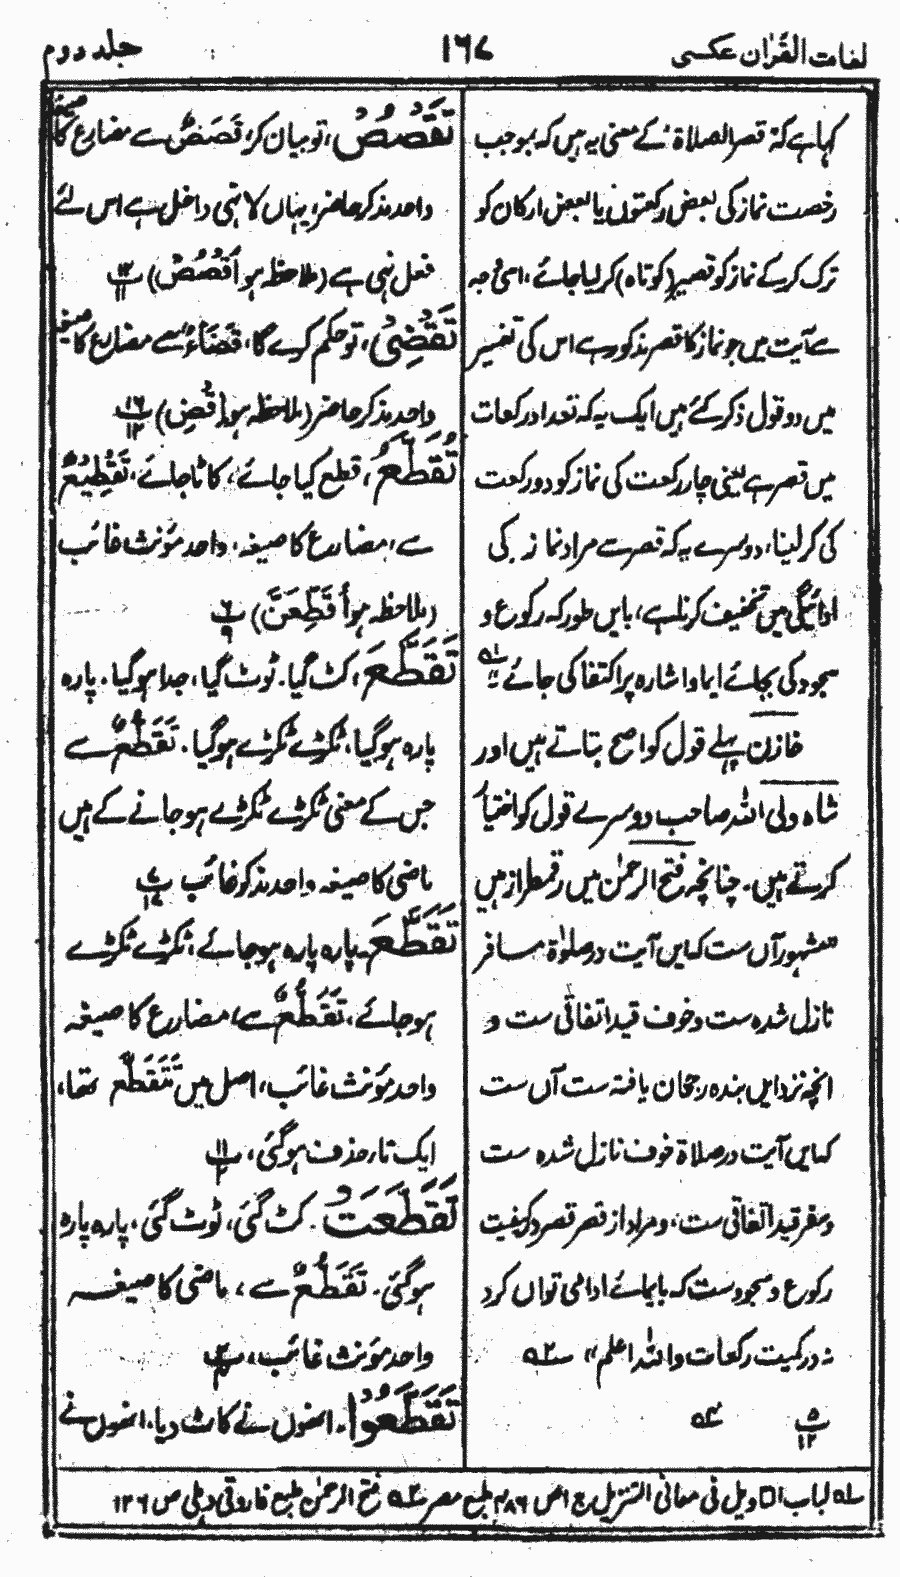 لغات القرآن عکسی
۱۶۷
جلد دوم
کہا ہے کہ قصر الصلاۃ کے معنی یہ ہیں کہ بموجب
رخصت نماز کی بعض رکعتوں یا بعض ارکان کو
ترک کر کے نماز کو قصیر (کوتاہ) کر لیا جائے، اسی وجہ
سے آیت میں جو نماز کا قصر مذکور ہے اس کی تفسیر
میں دو قول ذکر کئے ہیں ایک یہ کہ تعداد رکعات
میں قصر ہے یعنی چار رکعت کی نماز کو دو رکعت
کی کر لینا، دوسرے یہ کہ قصر سے مراد نماز کی
ادائیگی میں تخفیف کرنا ہے، بایں طور کہ رکوع و
سجود کی بجائے ایما و اشارہ پر اکتفا کی جائے ۱؎
خازن پہلے قول کو اصح بتاتے ہیں اور
شاہ ولی اللہ صاحب دوسرے قول کو اختیار
کرتے ہیں۔ چنانچہ فتح الرحمٰن میں رقمطراز ہیں
مشہور آں ست کہ ایں آیت در صلوٰۃ مسافر
نازل شدہ ست و خوف قید اتفاقی ست و
انچہ نزد ایں بندہ رجحان یافتہ ست آں ست
کہ ایں آیت در صلاۃ خوف نازل شدہ ست
و سفر قید اتفاقی ست، و مراد از قصر قصر در کیفیت
رکوع و سجود ست کہ بایمائے ادا می تواں کرد
نہ در کمیت رکعات واللہ اعلم" ۲؎
۵/۱۲ ۳؎
تَقْصُصْ، تو بیان کر، قَصَصٌ سے مضارع کا صیغہ
واحد مذکر حاضر، یہاں لا نہی داخل ہے اس لئے
فعل نہی ہے (ملاحظہ ہو اُقْصُصْ) ۱۲/۱۱
تَقْضِیْ، تو حکم کرے گا، قَضَاءٌ سے مضارع کا صیغہ
واحد مذکر حاضر (ملاحظہ ہو اِقْضِ) ۱۶/۱۲
تَقَطَّعَ، قطع کیا جائے، کاٹا جائے، تَقْطِیْعٌ
سے، مضارع کا صیغہ، واحد مؤنث غائب
(ملاحظہ ہو اُقَطِّعَنَّ) ۶/۹
تَقَطَّعَ، کٹ گیا۔ ٹوٹ گیا، جدا ہو گیا، پارہ
پارہ ہو گیا، ٹکڑے ٹکڑے ہو گیا۔ تَقَطُّعٌ سے
جس کے معنی ٹکڑے ٹکڑے ہو جانے کے ہیں
ماضی کا صیغہ واحد مذکر غائب ۷/۱۷
تَقَطَّعَ۔ پارہ پارہ ہو جائے، ٹکڑے ٹکڑے
ہو جائے، تَقَطُّعٌ سے، مضارع کا صیغہ
واحد مؤنث غائب، اصل میں تَتَقَطَّعُ تھا،
ایک تار حذف ہو گئی، ۱۱/۲
تَقَطَّعَتْ۔ کٹ گئی، ٹوٹ گئی، پارہ پارہ
ہو گئی۔ تَقَطُّعٌ سے، ماضی کا صیغہ
واحد مؤنث غائب، ۲/۴
تَقَطَّعُوْا۔ انھوں نے کاٹ دیا، انھوں نے
۱؎ لباب التاویل فی معانی التنزیل ج ۱ ص ۴۸۶ طبع مصر ۲؎ فتح الرحمٰن طبع فاروقی دہلی ص ۱۲۶